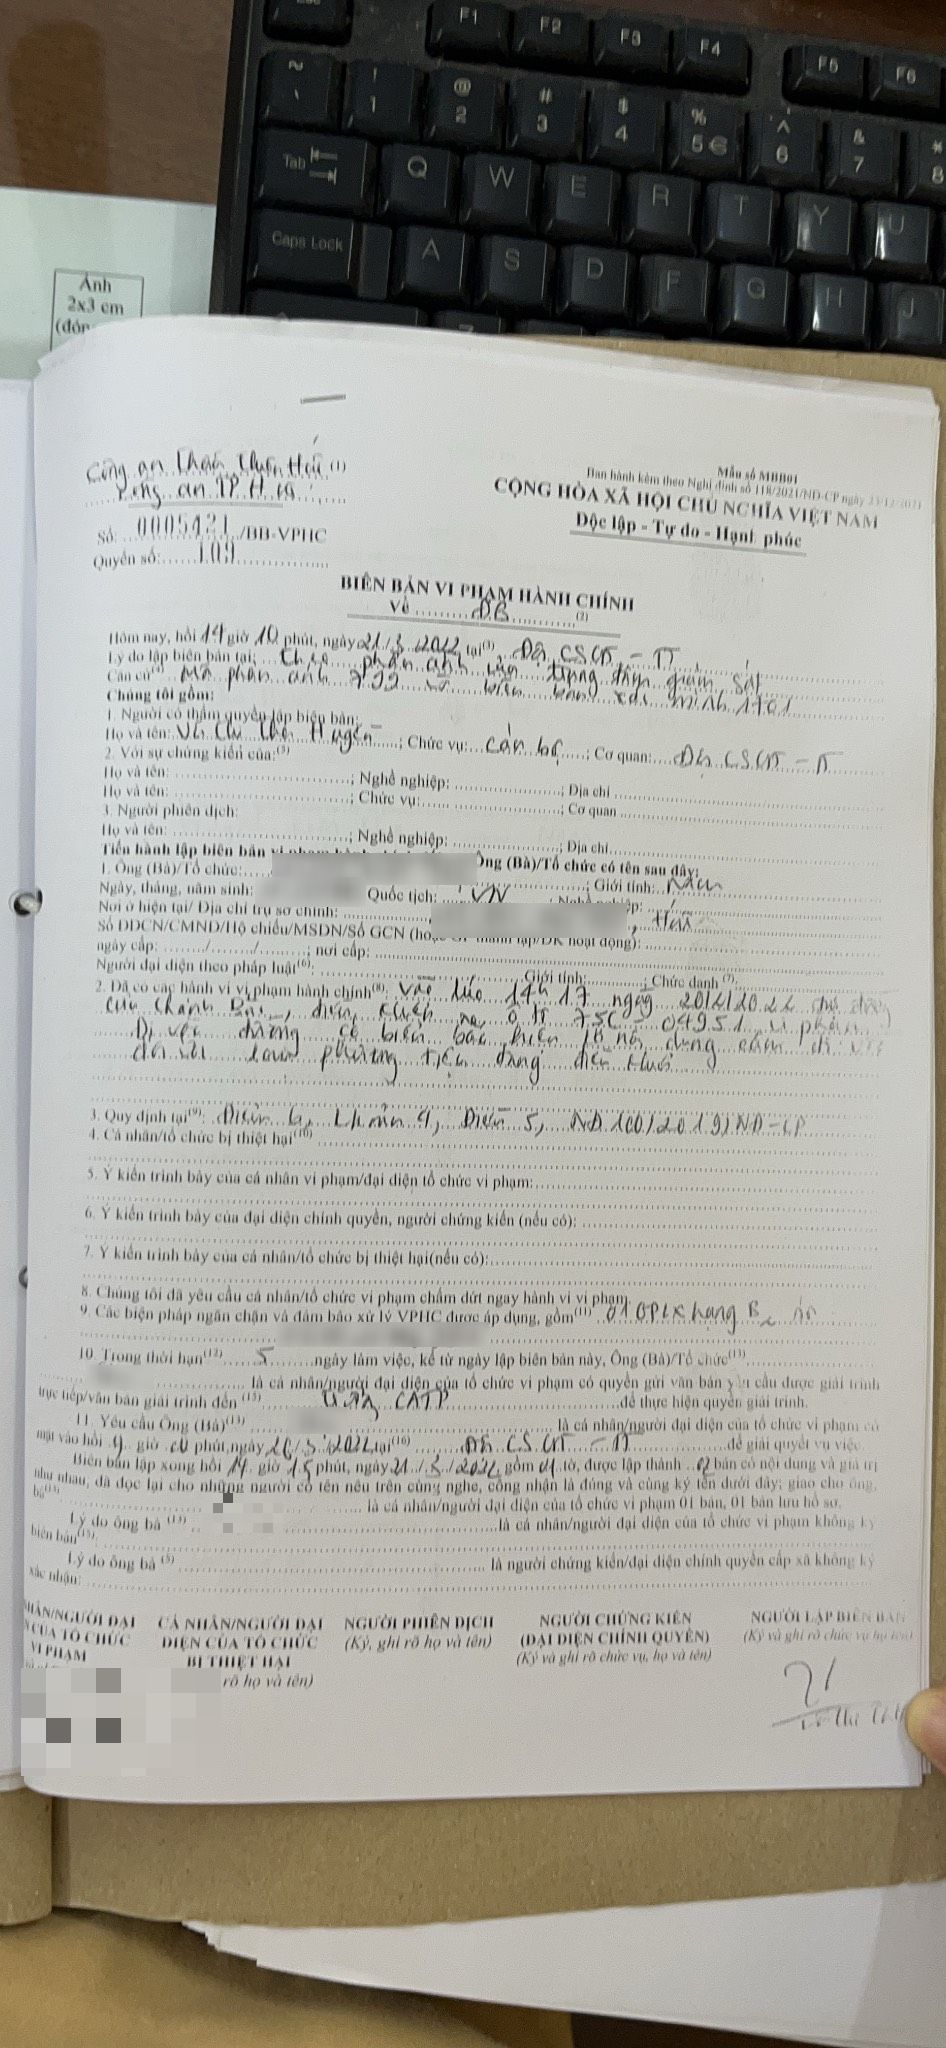 F1 F2 F3 F4 F5 F6
~ ! 1 @ 2 # 3 $ 4 % 5 € ^ 6 & 7 * 8
Tab Q W E R T Y U
Caps Lock A S D F G H J
Ảnh
2x3 cm
(đón
Mẫu số MBB01
Ban hành kèm theo Nghị định số 118/2021/NĐ-CP ngày 23/12/2021
Công an (1)
Công an TP. Huế
CỘNG HÒA XÃ HỘI CHỦ NGHĨA VIỆT NAM
Độc lập - Tự do - Hạnh phúc
Số: 0005421 /BB-VPHC
Quyển số: 109
BIÊN BẢN VI PHẠM HÀNH CHÍNH
Về ĐB (2)
Hôm nay, hồi 14 giờ 10 phút, ngày 21/3/2022, tại (3) Đội CSGT - TT
Lý do lập biên bản tại: Theo phản ánh của trung tâm giám sát
Căn cứ Mã phản ánh 799 và biên bản xác minh 1701
Chúng tôi gồm:
1. Người có thẩm quyền lập biên bản:
Họ và tên: ; Chức vụ: cán bộ ; Cơ quan: Đội CSGT - TT
2. Với sự chứng kiến của: (5)
Họ và tên: ; Nghề nghiệp: ; Địa chỉ
Họ và tên: ; Chức vụ: ; Cơ quan
3. Người phiên dịch:
Họ và tên: ; Nghề nghiệp: ; Địa chỉ
Tiến hành lập biên bản Ông (Bà)/Tổ chức có tên sau đây:
1. Ông (Bà)/Tổ chức: ; Giới tính: Nam
Ngày, tháng, năm sinh: Quốc tịch: VN
Nơi ở hiện tại/ Địa chỉ trụ sở chính: , Huế
Số ĐDCN/CMND/Hộ chiếu/MSDN/Số GCN (hoặc GP thành lập/ĐK hoạt động):
ngày cấp: / / ; nơi cấp:
Người đại diện theo pháp luật (6): Giới tính: Chức danh (7):
2. Đã có các hành vi vi phạm hành chính (8): Vào lúc 14h17 ngày
, điều khiển xe ô tô 75C 04951 vi phạm
Đi vào đường có biển báo hiệu có nội dung cấm đi vào
đối với loại phương tiện đang điều khiển
3. Quy định tại (9): Điểm b, Khoản 4, Điều 5, NĐ 100/2019/NĐ-CP
4. Cá nhân/tổ chức bị thiệt hại (10)
5. Ý kiến trình bày của cá nhân vi phạm/đại diện tổ chức vi phạm:
6. Ý kiến trình bày của đại diện chính quyền, người chứng kiến (nếu có):
7. Ý kiến trình bày của cá nhân/tổ chức bị thiệt hại(nếu có):
8. Chúng tôi đã yêu cầu cá nhân/tổ chức vi phạm chấm dứt ngay hành vi vi phạm.
9. Các biện pháp ngăn chặn và đảm bảo xử lý VPHC được áp dụng, gồm (11) 01 GPLX hạng B2
10. Trong thời hạn (12) 5 ngày làm việc, kể từ ngày lập biên bản này, Ông (Bà)/Tổ chức (13)
là cá nhân/người đại diện của tổ chức vi phạm có quyền gửi văn bản yêu cầu được giải trình
trực tiếp/văn bản giải trình đến (15) CATP để thực hiện quyền giải trình.
11. Yêu cầu Ông (Bà) (13) là cá nhân/người đại diện của tổ chức vi phạm có
mặt vào hồi giờ 00 phút, ngày tại (16) Đội CSGT - TT để giải quyết vụ việc.
Biên bản lập xong hồi 14 giờ 15 phút, ngày 21/3/2022 gồm 01 tờ, được lập thành 02 bản có nội dung và giá trị
như nhau, đã đọc lại cho những người có tên nêu trên cùng nghe, công nhận là đúng và cùng ký tên dưới đây; giao cho ông,
bà (13) là cá nhân/người đại diện của tổ chức vi phạm 01 bản, 01 bản lưu hồ sơ.
Lý do ông bà (13) là cá nhân/người đại diện của tổ chức vi phạm không ký
biên bản (15):
Lý do ông bà (5) là người chứng kiến/đại diện chính quyền cấp xã không ký
xác nhận:
NHÂN/NGƯỜI ĐẠI
N CỦA TỔ CHỨC
VI PHẠM
CÁ NHÂN/NGƯỜI ĐẠI
DIỆN CỦA TỔ CHỨC
BỊ THIỆT HẠI
rõ họ và tên)
NGƯỜI PHIÊN DỊCH
(Ký, ghi rõ họ và tên)
NGƯỜI CHỨNG KIẾN
(ĐẠI DIỆN CHÍNH QUYỀN)
(Ký và ghi rõ chức vụ, họ và tên)
NGƯỜI LẬP BIÊN BẢN
(Ký và ghi rõ chức vụ họ tên)